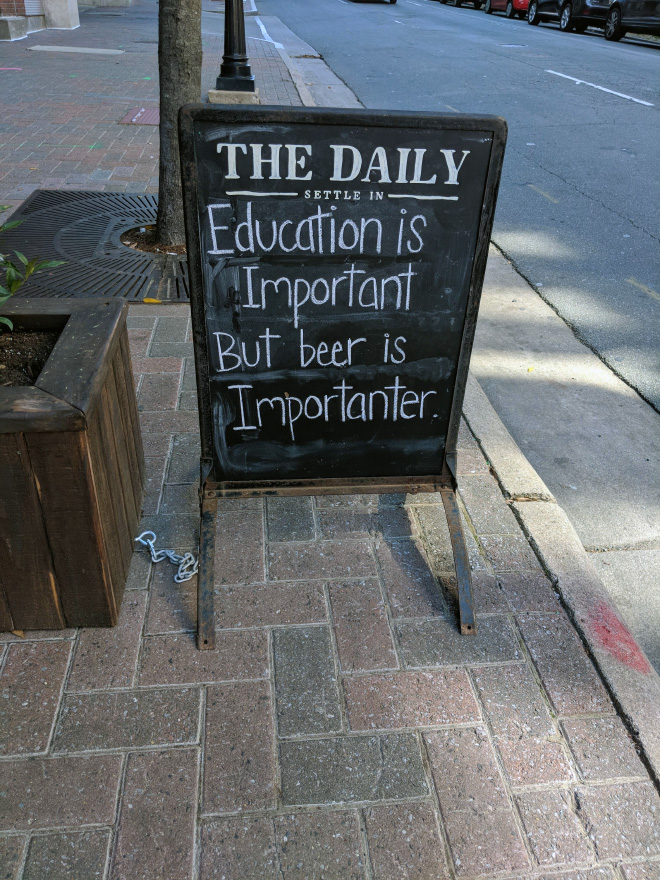 THE DAILY
SETTLE IN
Education is
Important
But beer is
Importanter.